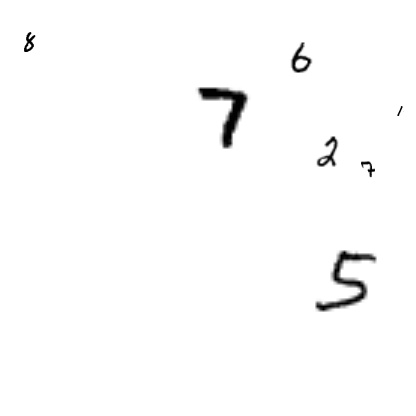 8
6
7
1
2
7
5